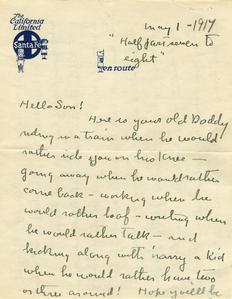 The
California
Limited
Santa Fe
en route
May 1 - 1917
"Half past seven to
eight"
Hello Son!
Here is your old Daddy
riding in a train when he would
rather ride you on his knee -
going away when he would rather
come back - working when he
would rather loaf - writing when
he would rather talk - and
kicking along with narry a kid
when he would rather have two
or three around! Hope you'll be